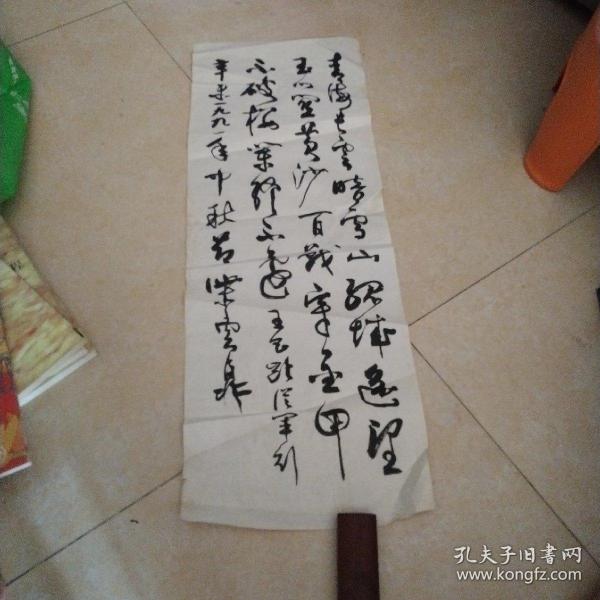 青海长雲暗雪山孤城遥望
玉门関黄沙百战穿金甲
不破楼兰终不还 王昌龄从军行
辛未一九九一年中秋节柴雲
孔夫子旧书网
www.kongfz.com